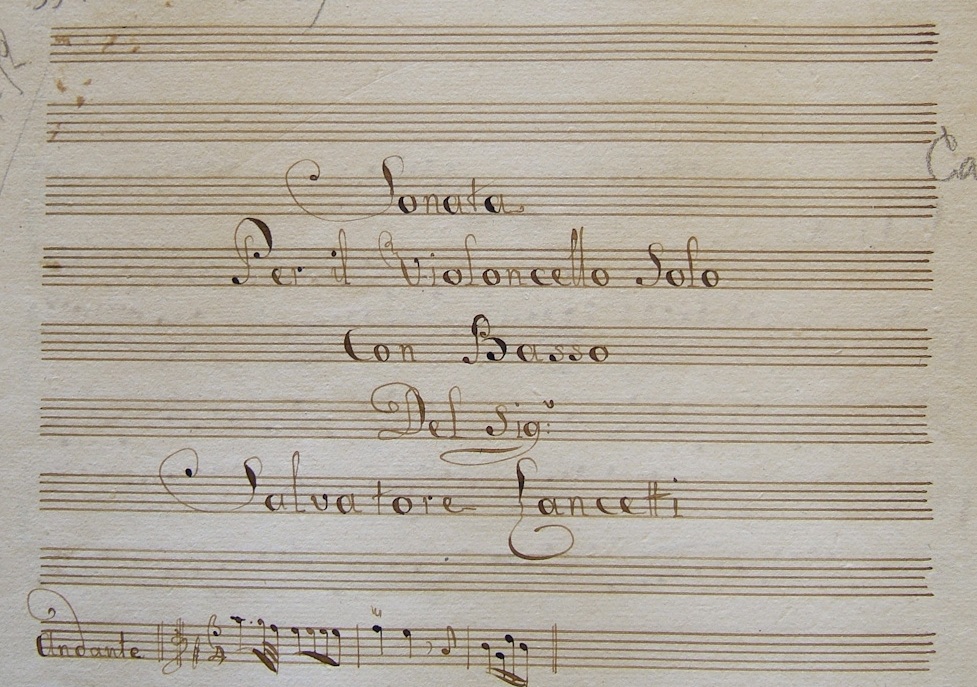 Ca
Sonata
Per il Violoncello Solo
Con Basso
Del Sig.r
Salvatore Lancetti
Andante